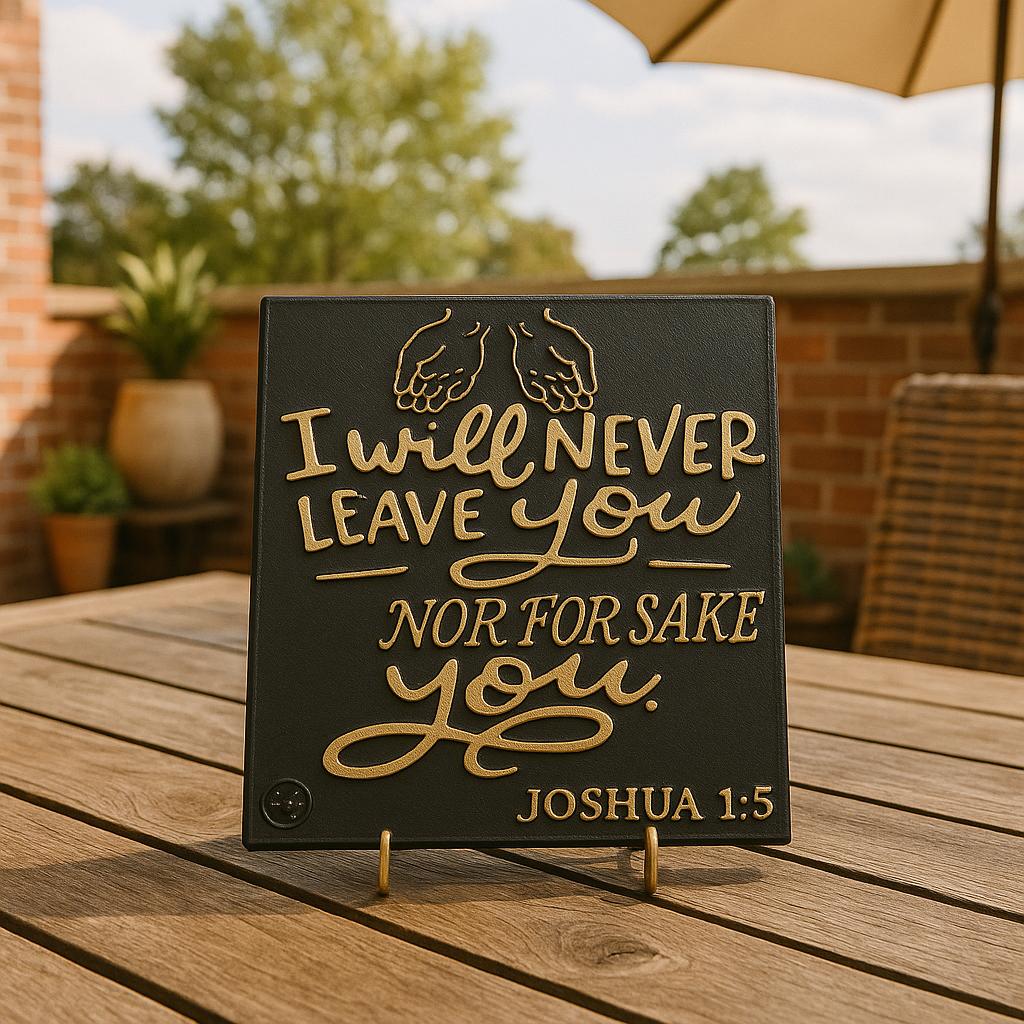 I will NEVER
LEAVE you
NOR FOR SAKE
you.
JOSHUA 1:5